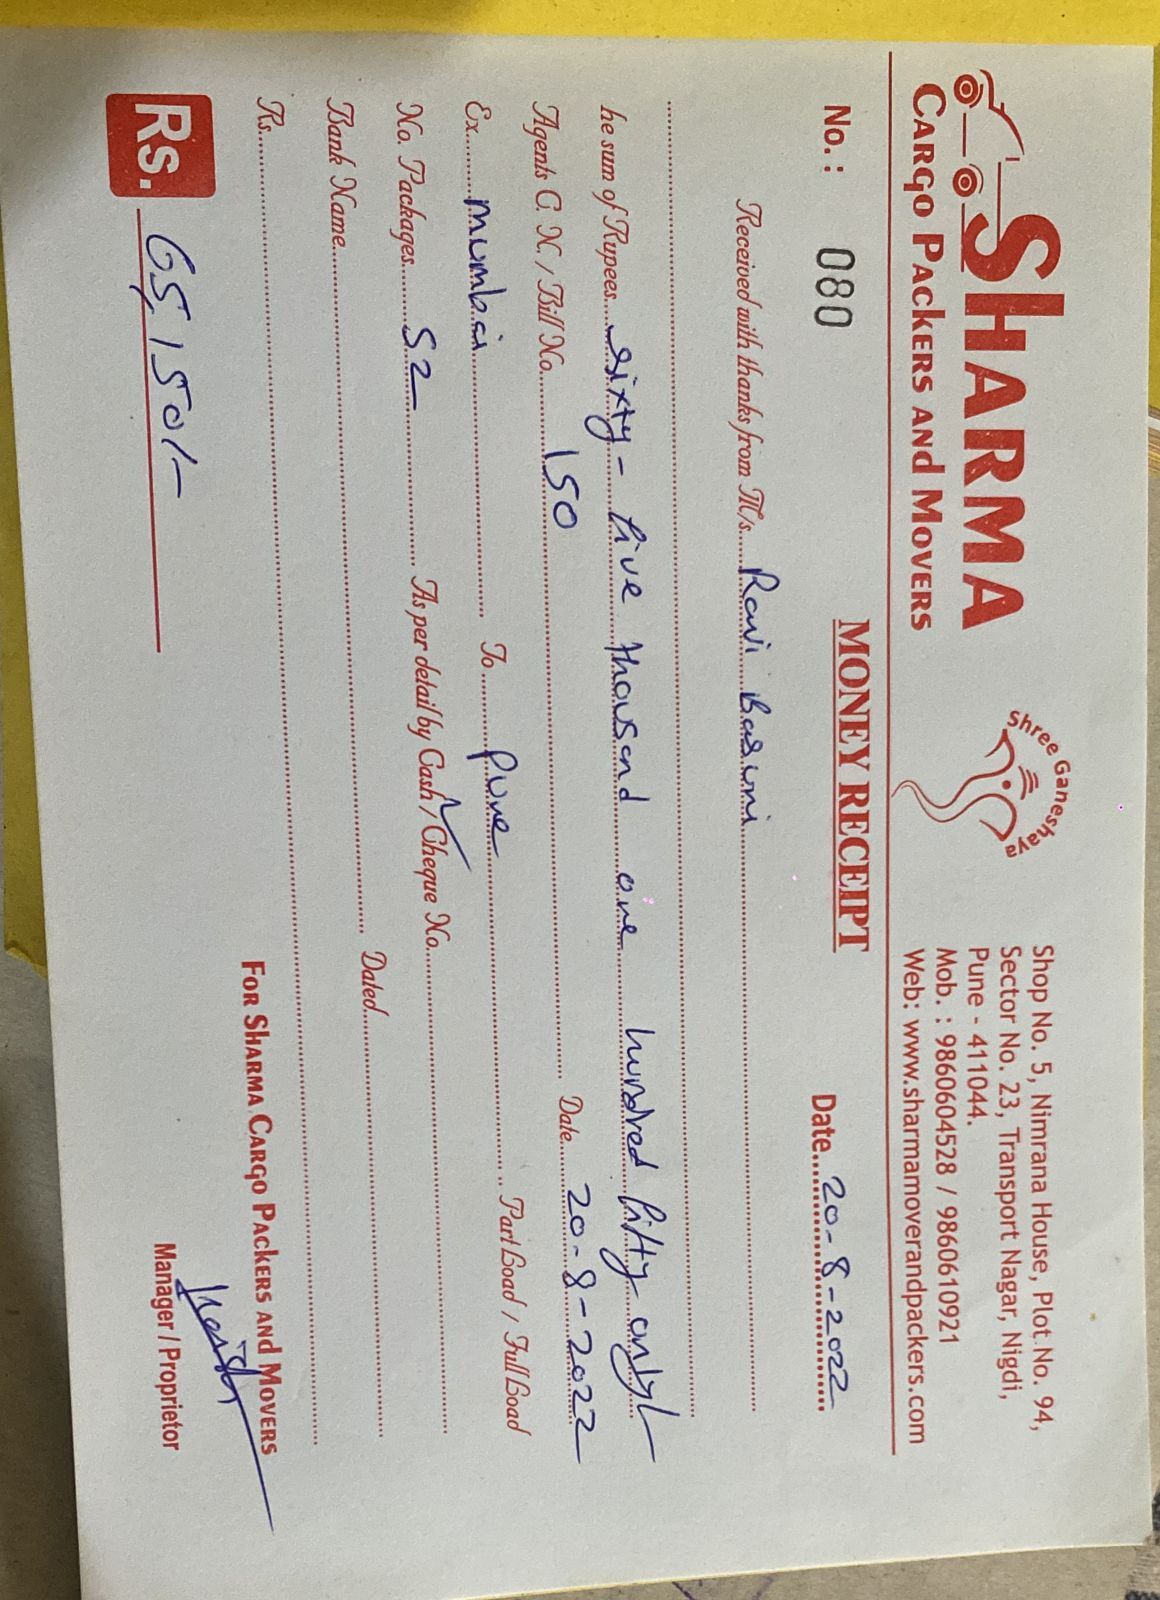 SHARMA
CARGO PACKERS AND MOVERS
Shree Ganeshaya
Shop No. 5, Nimrana House, Plot No. 94,
Sector No. 23, Transport Nagar, Nigdi,
Pune - 411044.
Mob. : 9860604528 / 9860610921
Web: www.sharmamoverandpackers.com
MONEY RECEIPT
No. : 080
Date 20-8-2022
Received with thanks from M/s. Ravi
he sum of Rupees sixty-five thousand one hundred fifty only
Agents C. N. / Bill No. 150 Date 20-8-2022
Ex mumbai To pune Part Load / Full Load
No. Packages 52 As per detail by Cash / Cheque No.
Bank Name Dated
Rs.
FOR SHARMA CARGO PACKERS AND MOVERS
Rs. 65,150/-
Manager / Proprietor